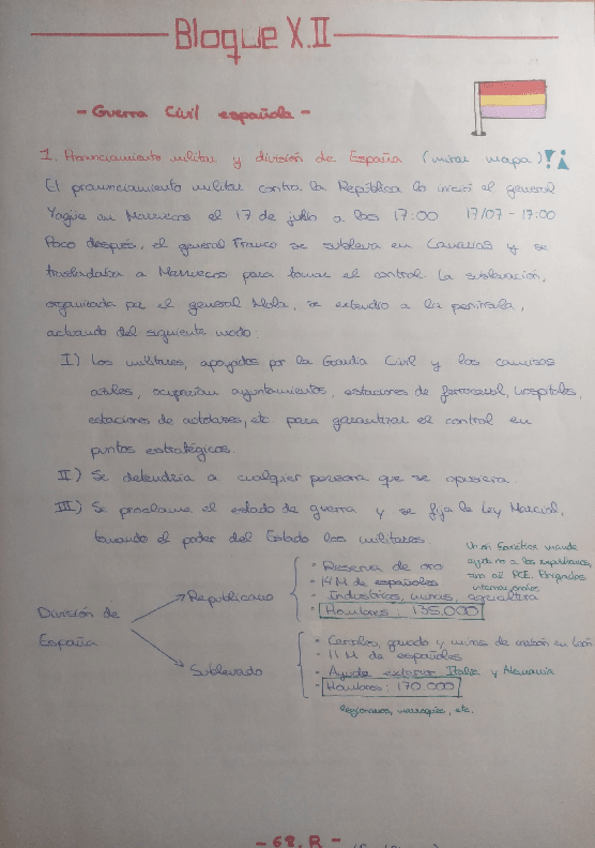 Bloque X.II
- Guerra Civil española -
1. Pronunciamiento militar y división de España (mirar mapa)
El pronunciamiento militar contra la República lo inició el general
Yagüe en Marruecos el 17 de julio a las 17:00 17/07 - 17:00
Poco después, el general Franco se subleva en Canarias y se
trasladaba a Marruecos para tomar el control. La sublevación,
organizada por el general Mola, se extendió a la península,
actuando del siguiente modo:
I) Los militares, apoyados por la Guardia Civil y los camisas
azules, ocuparían ayuntamientos, estaciones de ferrocarril, hospitales,
estaciones de autobuses, etc para garantizar el control en
puntos estratégicos.
II) Se detendría a cualquier persona que se opusiera.
III) Se proclama el estado de guerra y se fija la Ley Marcial,
tomando el poder del Estado los militares.
Unión Soviética manda
ayuda a los republicanos,
PCE. Brigadas
internacionales
División de
España
Republicano
· Reserva de oro
· 14 M de españoles
· Industrias, minas, agricultura
· Hombres: 135.000
Sublevado
· Cereales, ganado y minas de carbón en León
· 11 M de españoles
· Ayuda exterior Italia y Alemania
· Hombres: 170.000
legionarios, marroquíes, etc.
- 68. R -